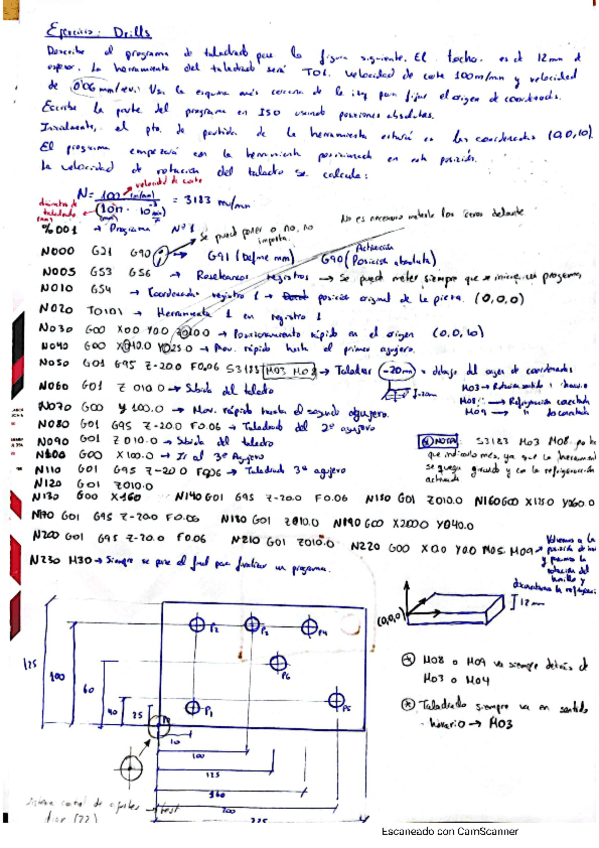 Ejercicio: Drills
Describe el programa de taladrado para la figura siguiente. El techo es de 12mm de
espesor. La herramienta del taladrado será T01. Velocidad de corte 100m/min y velocidad
de 0'06 mm/rev. Usa la esquina más cercana de la izq para fijar el origen de coordenadas.
Escribe la parte del programa en ISO usando posiciones absolutas.
Inicialmente, el pto. de partida de la herramienta estará en las coordenadas (0,0,10).
El programa empezará con la herramienta posicionada en esta posición.
La velocidad de rotación del taladro se calcula:
velocidad de corte
N = 100 (m/min) / (10π · 10⁻³) = 3183
diametro de taladrado (mm)
%001 → Programa Nº 1
Se puede poner o no, no importa.
No es necesario meterle los ceros delante
N000 G21 G90; → G91 (Define mm) G90 (Posición absoluta)
Activación
N005 G53 G56 → Reseteamos registros → Se puede meter siempre que se inicie un programa
N010 G54 → Coordenadas registro 1 → posición original de la pieza. (0,0,0)
N020 T0101 → Herramienta 1 en registro 1
N030 G00 X0.0 Y0.0 Z010.0 → Posicionamiento rápido en el origen (0,0,10)
N040 G00 X010.0 Y025.0 → Mov. rápido hasta el primer agujero.
N050 G01 G95 Z-20.0 F0.06 S3183 M03 M08 → Taladrar -20mm debajo del origen de coordenadas
N060 G01 Z010.0 → Subida del taladro
M03 → Rotación sentido horario
M08 → Refrigeración conectada
M09 → " desconectada
N070 G00 Y100.0 → Mov. rápido hasta el segundo agujero.
N080 G01 G95 Z-20.0 F0.06 → Taladrado del 2º agujero
N090 G01 Z010.0 → Subida del taladro
N100 G00 X100.0 → Ir al 3º Agujero
N110 G01 G95 Z-20.0 F0.06 → Taladrado 3º agujero
NOTA: S3183 M03 M08 no hay
que indicarlo más, ya que la herramienta
se queda girando y con la refrigeración
activada
N120 G01 Z010.0
N130 G00 X160 N140 G01 G95 Z-20.0 F0.06 N150 G01 Z010.0 N160 G00 X125.0 Y060.0
N170 G01 G95 Z-20.0 F0.06 N180 G01 Z010.0 N190 G00 X200.0 Y040.0
N200 G01 G95 Z-20.0 F0.06 N210 G01 Z010.0 N220 G00 X0.0 Y0.0 M05 M09
Volvemos a la
posición de inicio
y paramos la
rotación del
husillo y
desactivamos la refrigeración
N230 M30 → Siempre se pone al final para finalizar un programa.
(0,0,0)
12mm
P2 P3 P4
P6
P1 P5
P0
125
100
60
40
25
10
100
125
160
200
225
M08 o M09 va siempre detrás de
M03 o M04
Taladrado siempre va en sentido
horario → M03
Escaneado con CamScanner